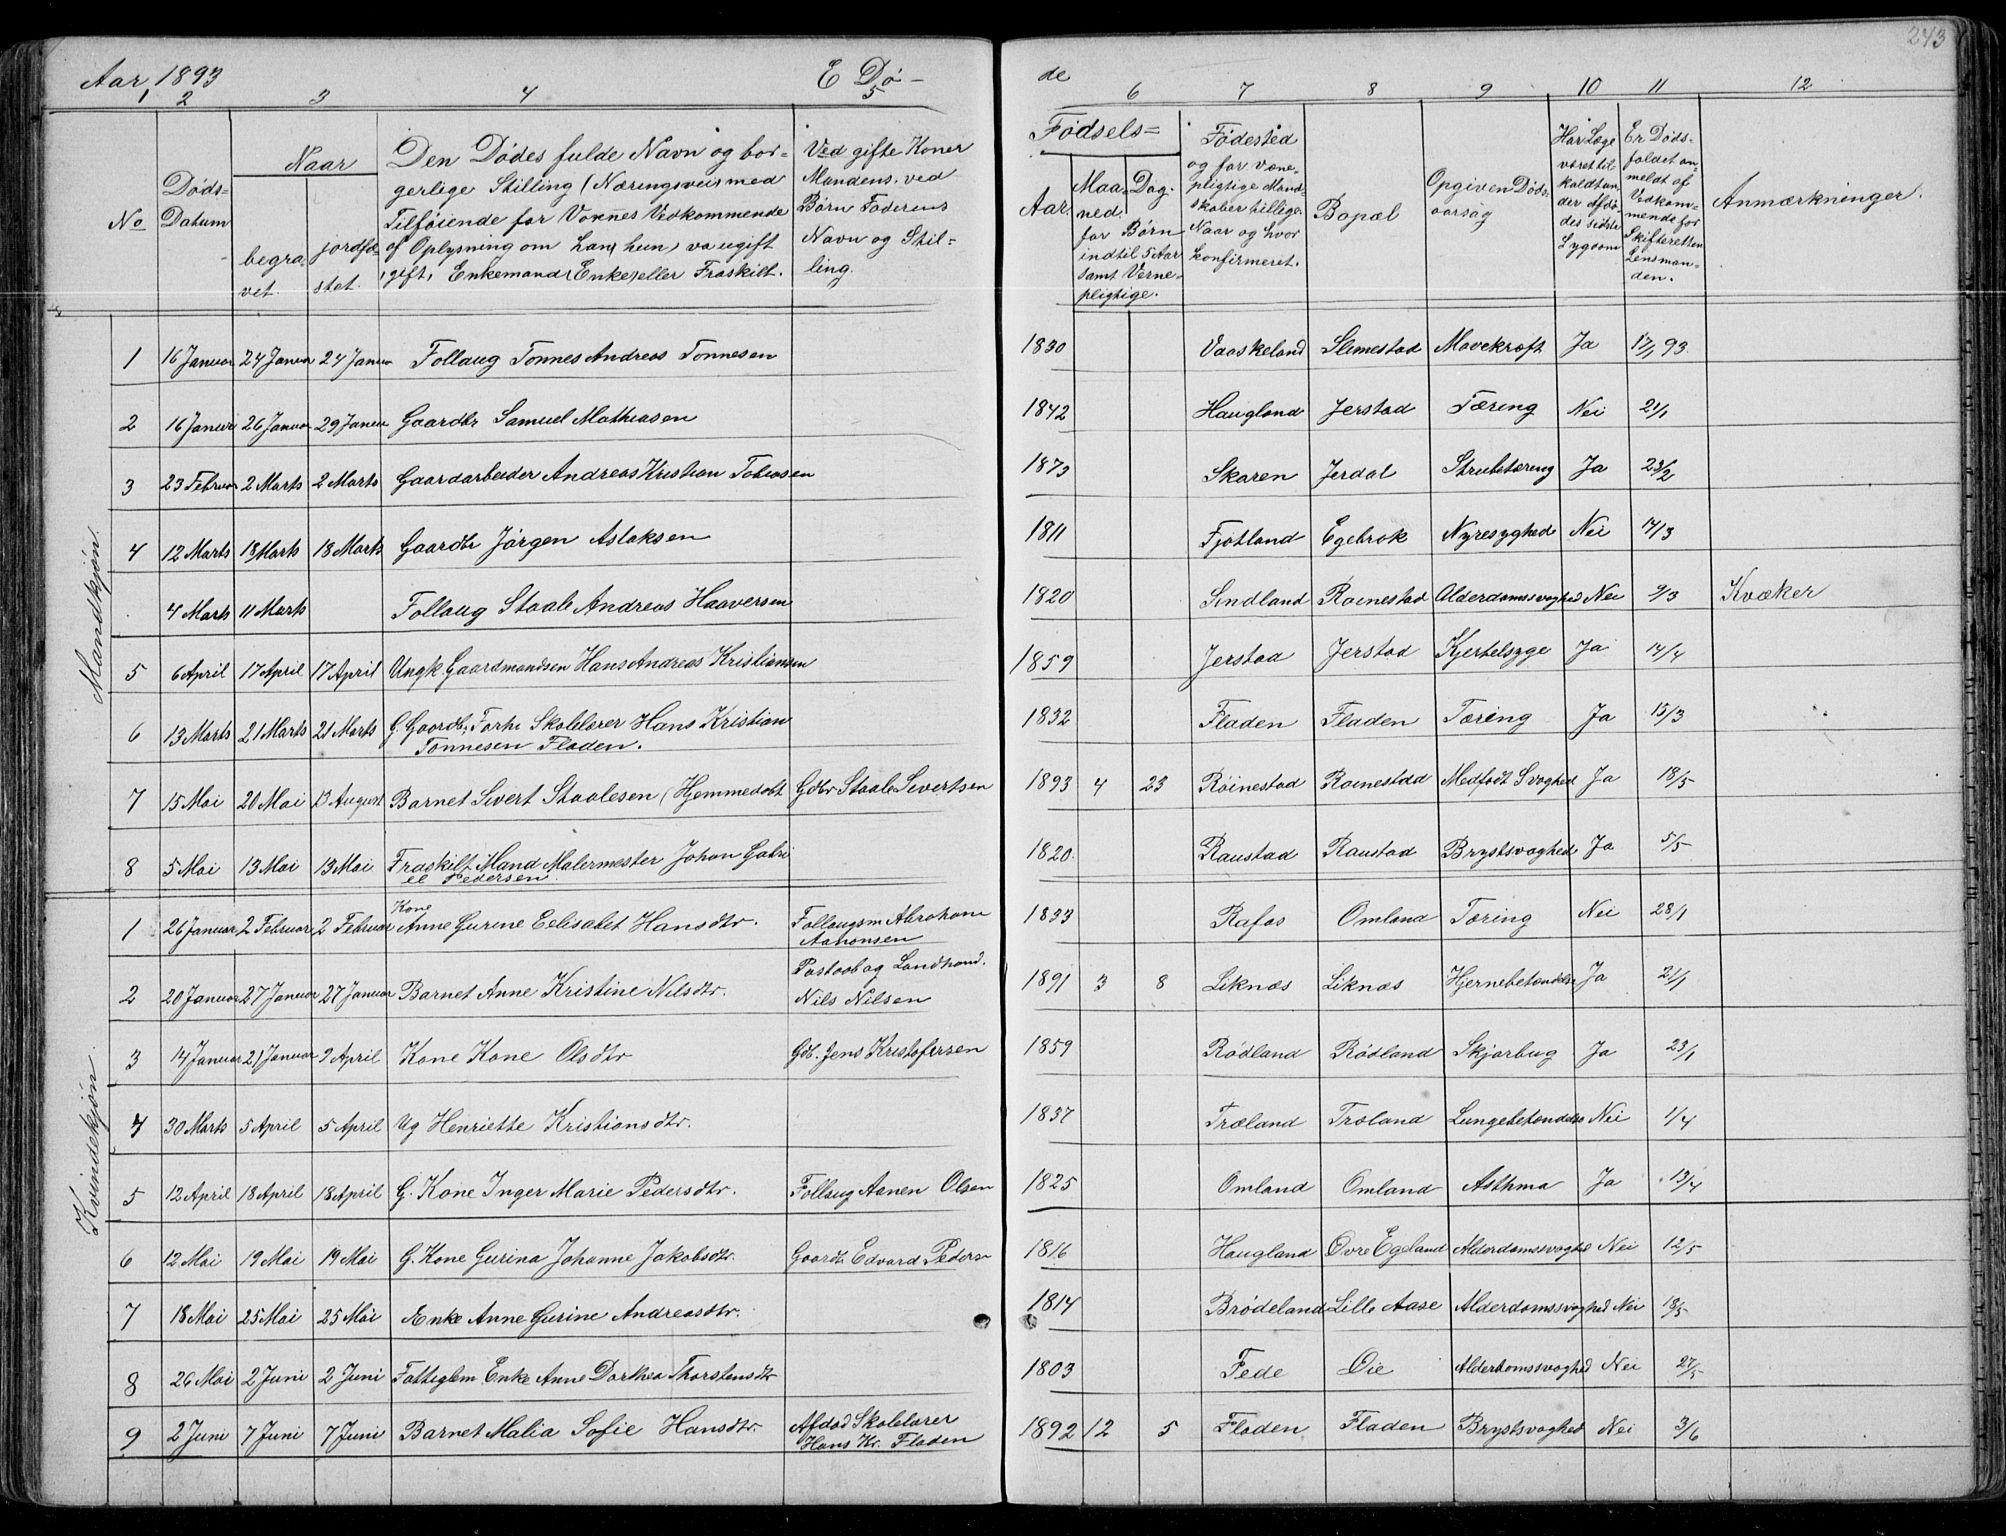 243
Aar 1893
E Dø-
de
1 2 3 4 5
6 7 8 9 10 11 12
No
Døds-
Datum
Naar
begra-
vet.
jordfæ-
stet.
Den Dødes fulde Navn og bor-
gerlige Stilling (Næringsvei) med
Tilføiende for Voxnes Vedkommende
af Oplysning om han (hun) va ugift
gift, Enkemand (Enke) eller Fraskilt.
Ved gifte Koner
Mandens, ved
Børn Faderens
Navn og Stil-
ling.
Fødsels=
Aar.
Maa-
ned.
Dag.
for Børn
indtil 5 Aar
samt Verne-
pligtige.
Fødested
og for værne-
pligtige Mand-
skaber tillige
Naar og hvor
konfirmeret.
Bopæl
Opgiven Døds-
aarsag
Har Læge
været til-
kaldt un-
der Afdø-
des sidste
Sygdom
Er Døds-
faldet an-
meldt af
Vedkom-
mende for
Skifteretten
Lensman-
den.
Anmærkninger.
Mandkjøn.
1 16 Januar 24 Januar 24 Januar Follaug Tønnes Andreas Tønnesen 1830 Vaaskeland Slimestad Mavekræft Ja 17/1 93
2 16 Januar 26 Januar 29 Januar Gaardbr Samuel Mathiasen 1842 Haugland Jerstad Tæring Nei 21/1
3 23 Februar 2 Marts 2 Marts Gaardarbeider Andreas Kristian Tobiasen 1873 Skaren Jerdal Strubetæring Ja 23/2
4 12 Marts 18 Marts 18 Marts Gaardbr Jørgen Aslaksen 1811 Fjotland Egebrok Nyresyghed Nei 14/3
4 Marts 11 Marts Follaug Staale Andreas Haaversen 1820 Sindland Røinestad Alderdomssvaghed Nei 9/3 Kvæker
5 6 April 17 April 17 April Ungk Gaardmandsøn Hans Andreas Kristiansen 1859 Jerstad Jerstad Kjertelsyge Ja 14/4
6 13 Marts 21 Marts 21 Marts G. Gaardb, Forh. Skolelærer Hans Kristian
Tønnesen Fladen. 1832 Fladen Fladen Tæring Ja 15/3
7 15 Mai 20 Mai 13 August Barnet Sivert Staalesen (Hjemmedøbt Gdbr Staale Sivertsen 1893 4 23 Røinestad Røinestad Medfødt Svaghed Ja 18/5
8 5 Mai 13 Mai 13 Mai Fraskilt Mand Malermester Johan Gabri
el Pedersen. 1820 Raustad Raustad Brystsvaghed Ja 5/5
Kvindekjøn.
Kone
1 26 Januar 2 Februar 2 Februar Anne Gurine Eelisabet Hansdtr. Follaugsm Abraham
Aanonsen 1833 Rafos Omland Tæring Nei 28/1
2 20 Januar 27 Januar 27 Januar Barnet Anne Kristine Nilsdtr. Landhand.
Nils Nilsen 1891 3 8 Liknæs Liknæs Hjernebetændelse Ja 21/1
3 14 Januar 21 Januar 9 April Kone Kone Olsdtr Gdb. Jens Kristofersen 1859 Rødland Rødland Skjørbug Ja 23/1
4 30 Marts 5 April 5 April Ug Henriette Kristiansdtr. 1837 Træland Træland Lungebetændelse Nei 1/4
5 12 April 18 April 18 April G. Kone Inger Marie Pedersdtr. Follaug Aanen Olsen 1825 Omland Omland Asthma Ja 13/4
6 12 Mai 19 Mai 19 Mai G. Kone Gurina Johanne Jakobsdtr. Gaardb. Edvard Peders 1816 Haugland Øvre Egeland Alderdomssvaghed Nei 12/5
7 18 Mai 25 Mai 25 Mai Enke Anne Gurine Andreasdtr. 1814 Brødeland Lille Aase Alderdomssvaghed Nei 18/5
8 26 Mai 2 Juni 2 Juni Fattiglem Enke Anne Dorthea Thorstensdtr 1803 Fede Øie Alderdomssvaghed Nei 27/5
9 2 Juni 7 Juni 7 Juni Barnet Malia Sofie Hansdtr. Afdød Skolelærer
Hans Kr. Fladen 1892 12 5 Fladen Fladen Brystsvaghed Nei 3/6